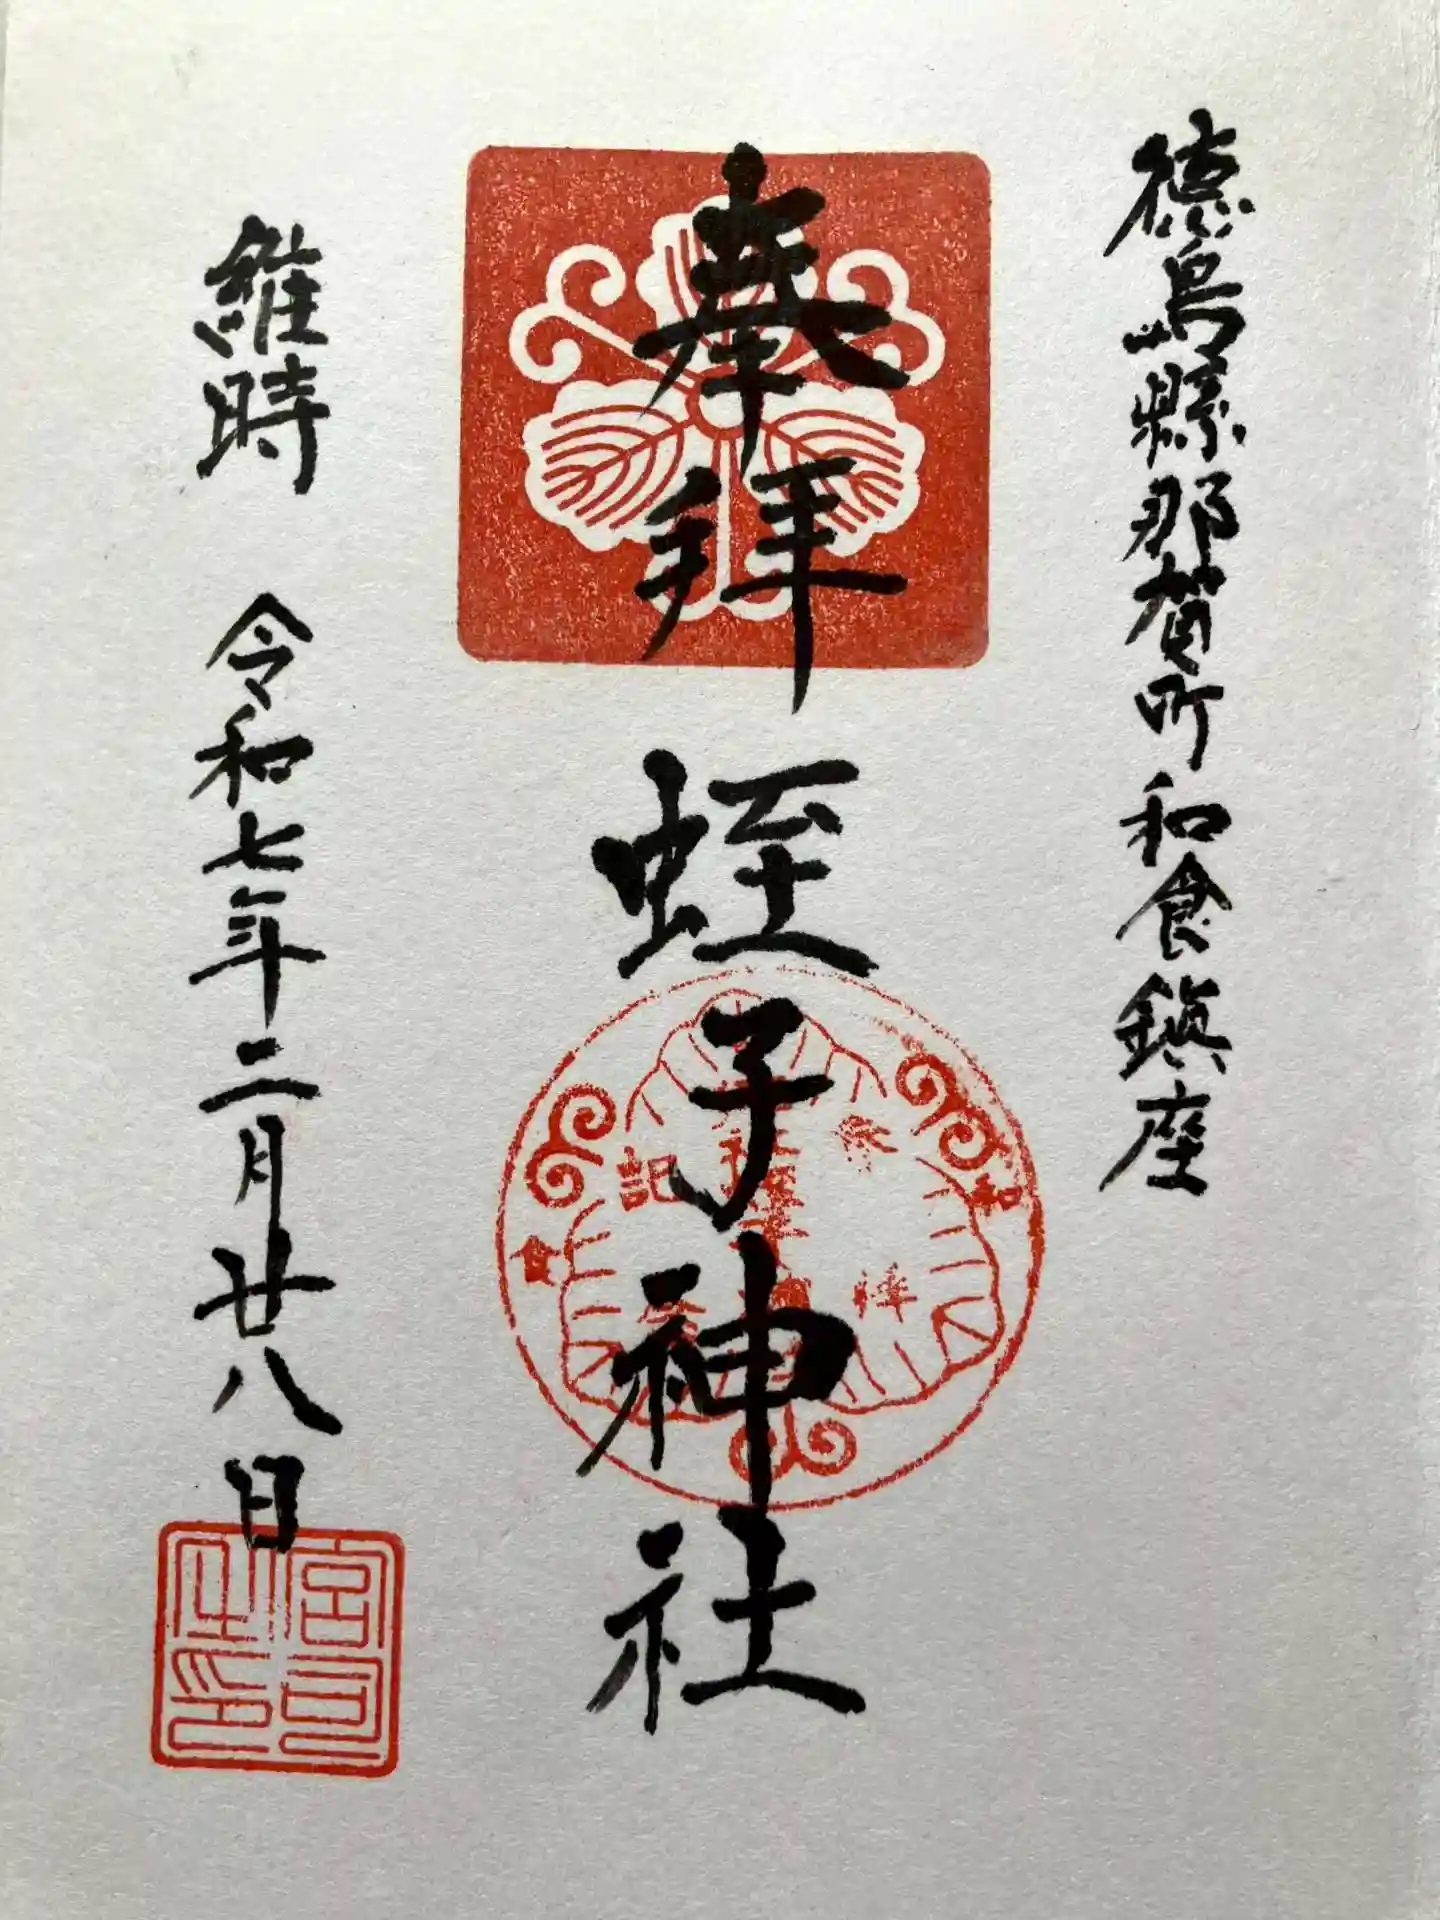 徳島縣那賀町和食鎮座
奉拝 蛭子神社
維時 令和七年二月廿八日
参拝
記
和
食
宮司
之印